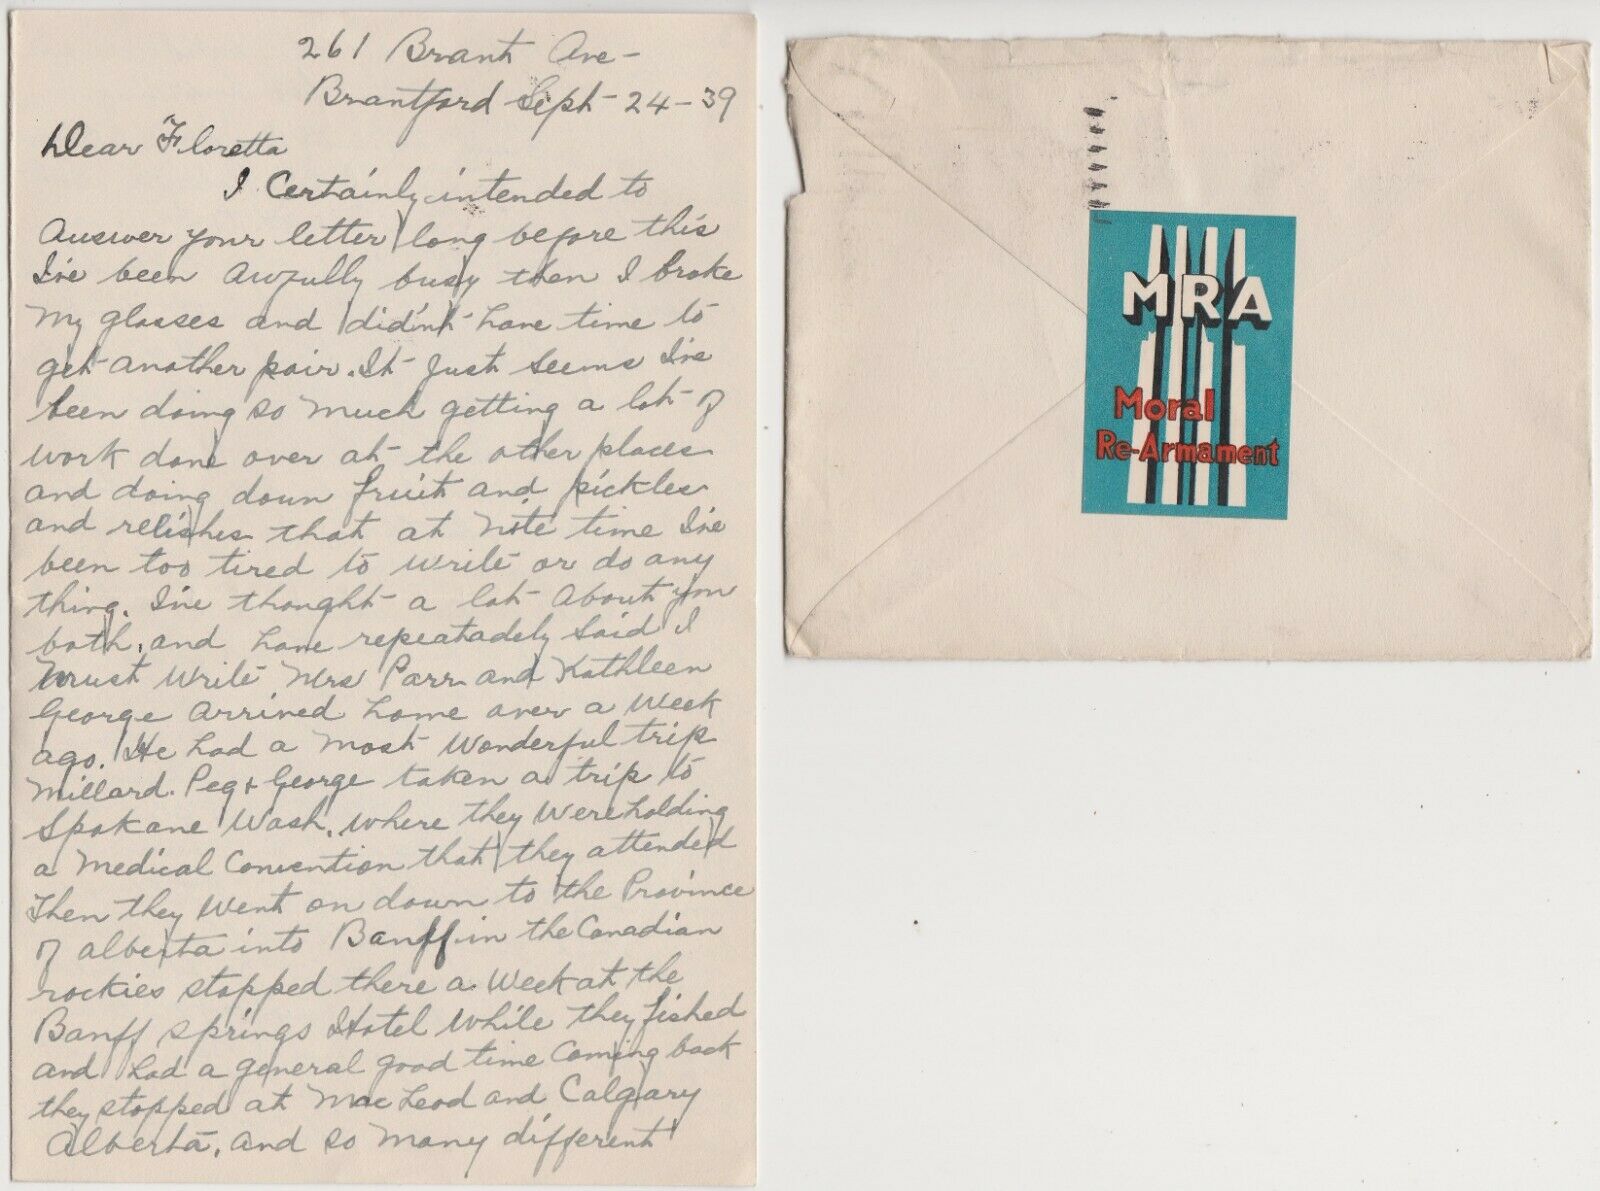 261 Brant Ave-
Brantford Sept-24-39
Dear Floretta
I Certainly intended to
Answer your letter long before this
I've been Awfully busy then I broke
My glasses and did'nt have time to
get another pair. It Just Seems I've
been doing so much getting a lot of
work done over at the other places
and doing down fruit and pickles
and relishes that at Nite time I've
been too tired to write or do any
thing. I've thought a lot About you
both, and have repeatadely Said I
Must Write Mrs Parr and Kathleen
George Arrived home over a Week
ago. He had a Most Wonderful trip
Millard. Peg + George taken a trip to
Spokane Wash. where they Were holding
a Medical Convention that they attended
Then they Went on down to the Province
of Alberta into Banff in the Canadian
rockies stopped there a Week at the
Banff Springs Hotel While they fished
and had a general good time Coming back
they stopped at MacLeod and Calgary
Alberta, and so Many different
MRA
Moral
Re-Armament